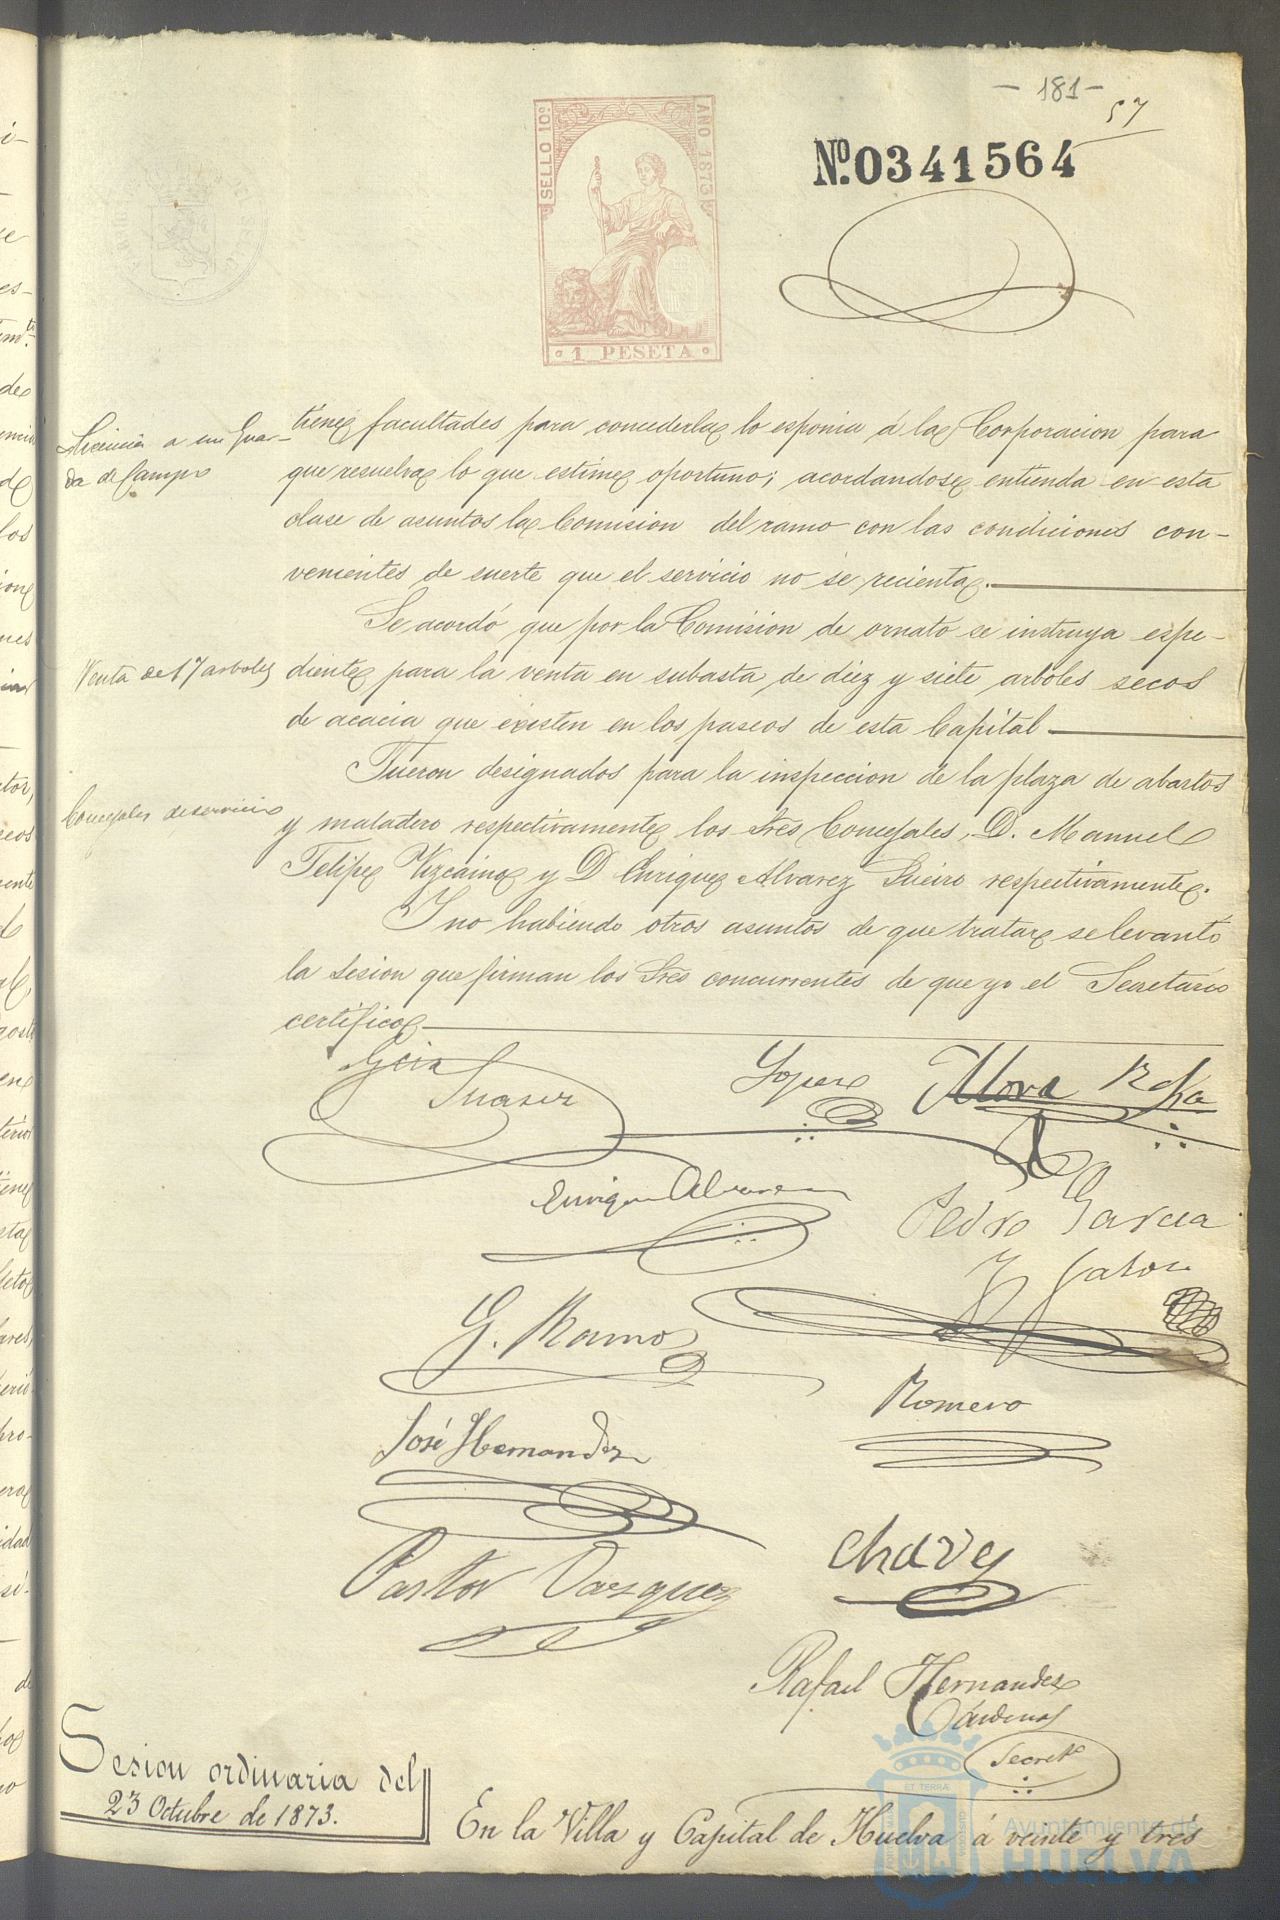 - 181 -
57
SELLO 10º
AÑO 1873
Nº 0341564
1 PESETA
Licencia a un Guar-
da de Campo
tiene facultades para concederla lo esponia á la Corporacion para
que resuelva lo que estime oportuno; acordandose entienda en esta
clase de asuntos la Comision del ramo con las condiciones con-
venientes de suerte que el servicio no se recienta.
Se acordó que por la Comision de ornato se instruya espe-
Venta de 17 arboles
diente para la venta en subasta de diez y siete arboles secos
de acacia que existen en los paseos de esta Capital
Fueron designados para la inspeccion de la plaza de abastos
Concejales de servicio
y matadero respectivamente los Sres Concejales, D. Manuel
Felipe Vizcaino y D Enrique Alvarez Sueiro respectivamente.
Y no habiendo otros asuntos de que tratar se levantó
la sesion que firman los Sres concurrentes de que yo el Secretario
certifico
Gcia
Suarez
Lopez
Mora
Enrique Alvarez
Pedro Garcia
G. Ramos
Romero
José Hernandez
Pastor Vazquez
Chavez
Rafael Hernandez
Cárdenas
Secretº
Sesion ordinaria del
23 Octubre de 1873.
En la Villa y Capital de Huelva á veinte y tres
ET TERRÆ
Ayuntamiento de
HUELVA